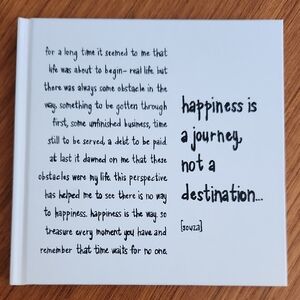 for a long time it seemed to me that
life was about to begin- real life. but
there was always some obstacle in the
way, something to be gotten through
first, some unfinished business, time
still to be served, a debt to be paid.
at last it dawned on me that these
obstacles were my life. this perspective
has helped me to see there is no way
to happiness. happiness is the way. so
treasure every moment you have and
remember that time waits for no one.
happiness is
a journey,
not a
destination...
[souza]